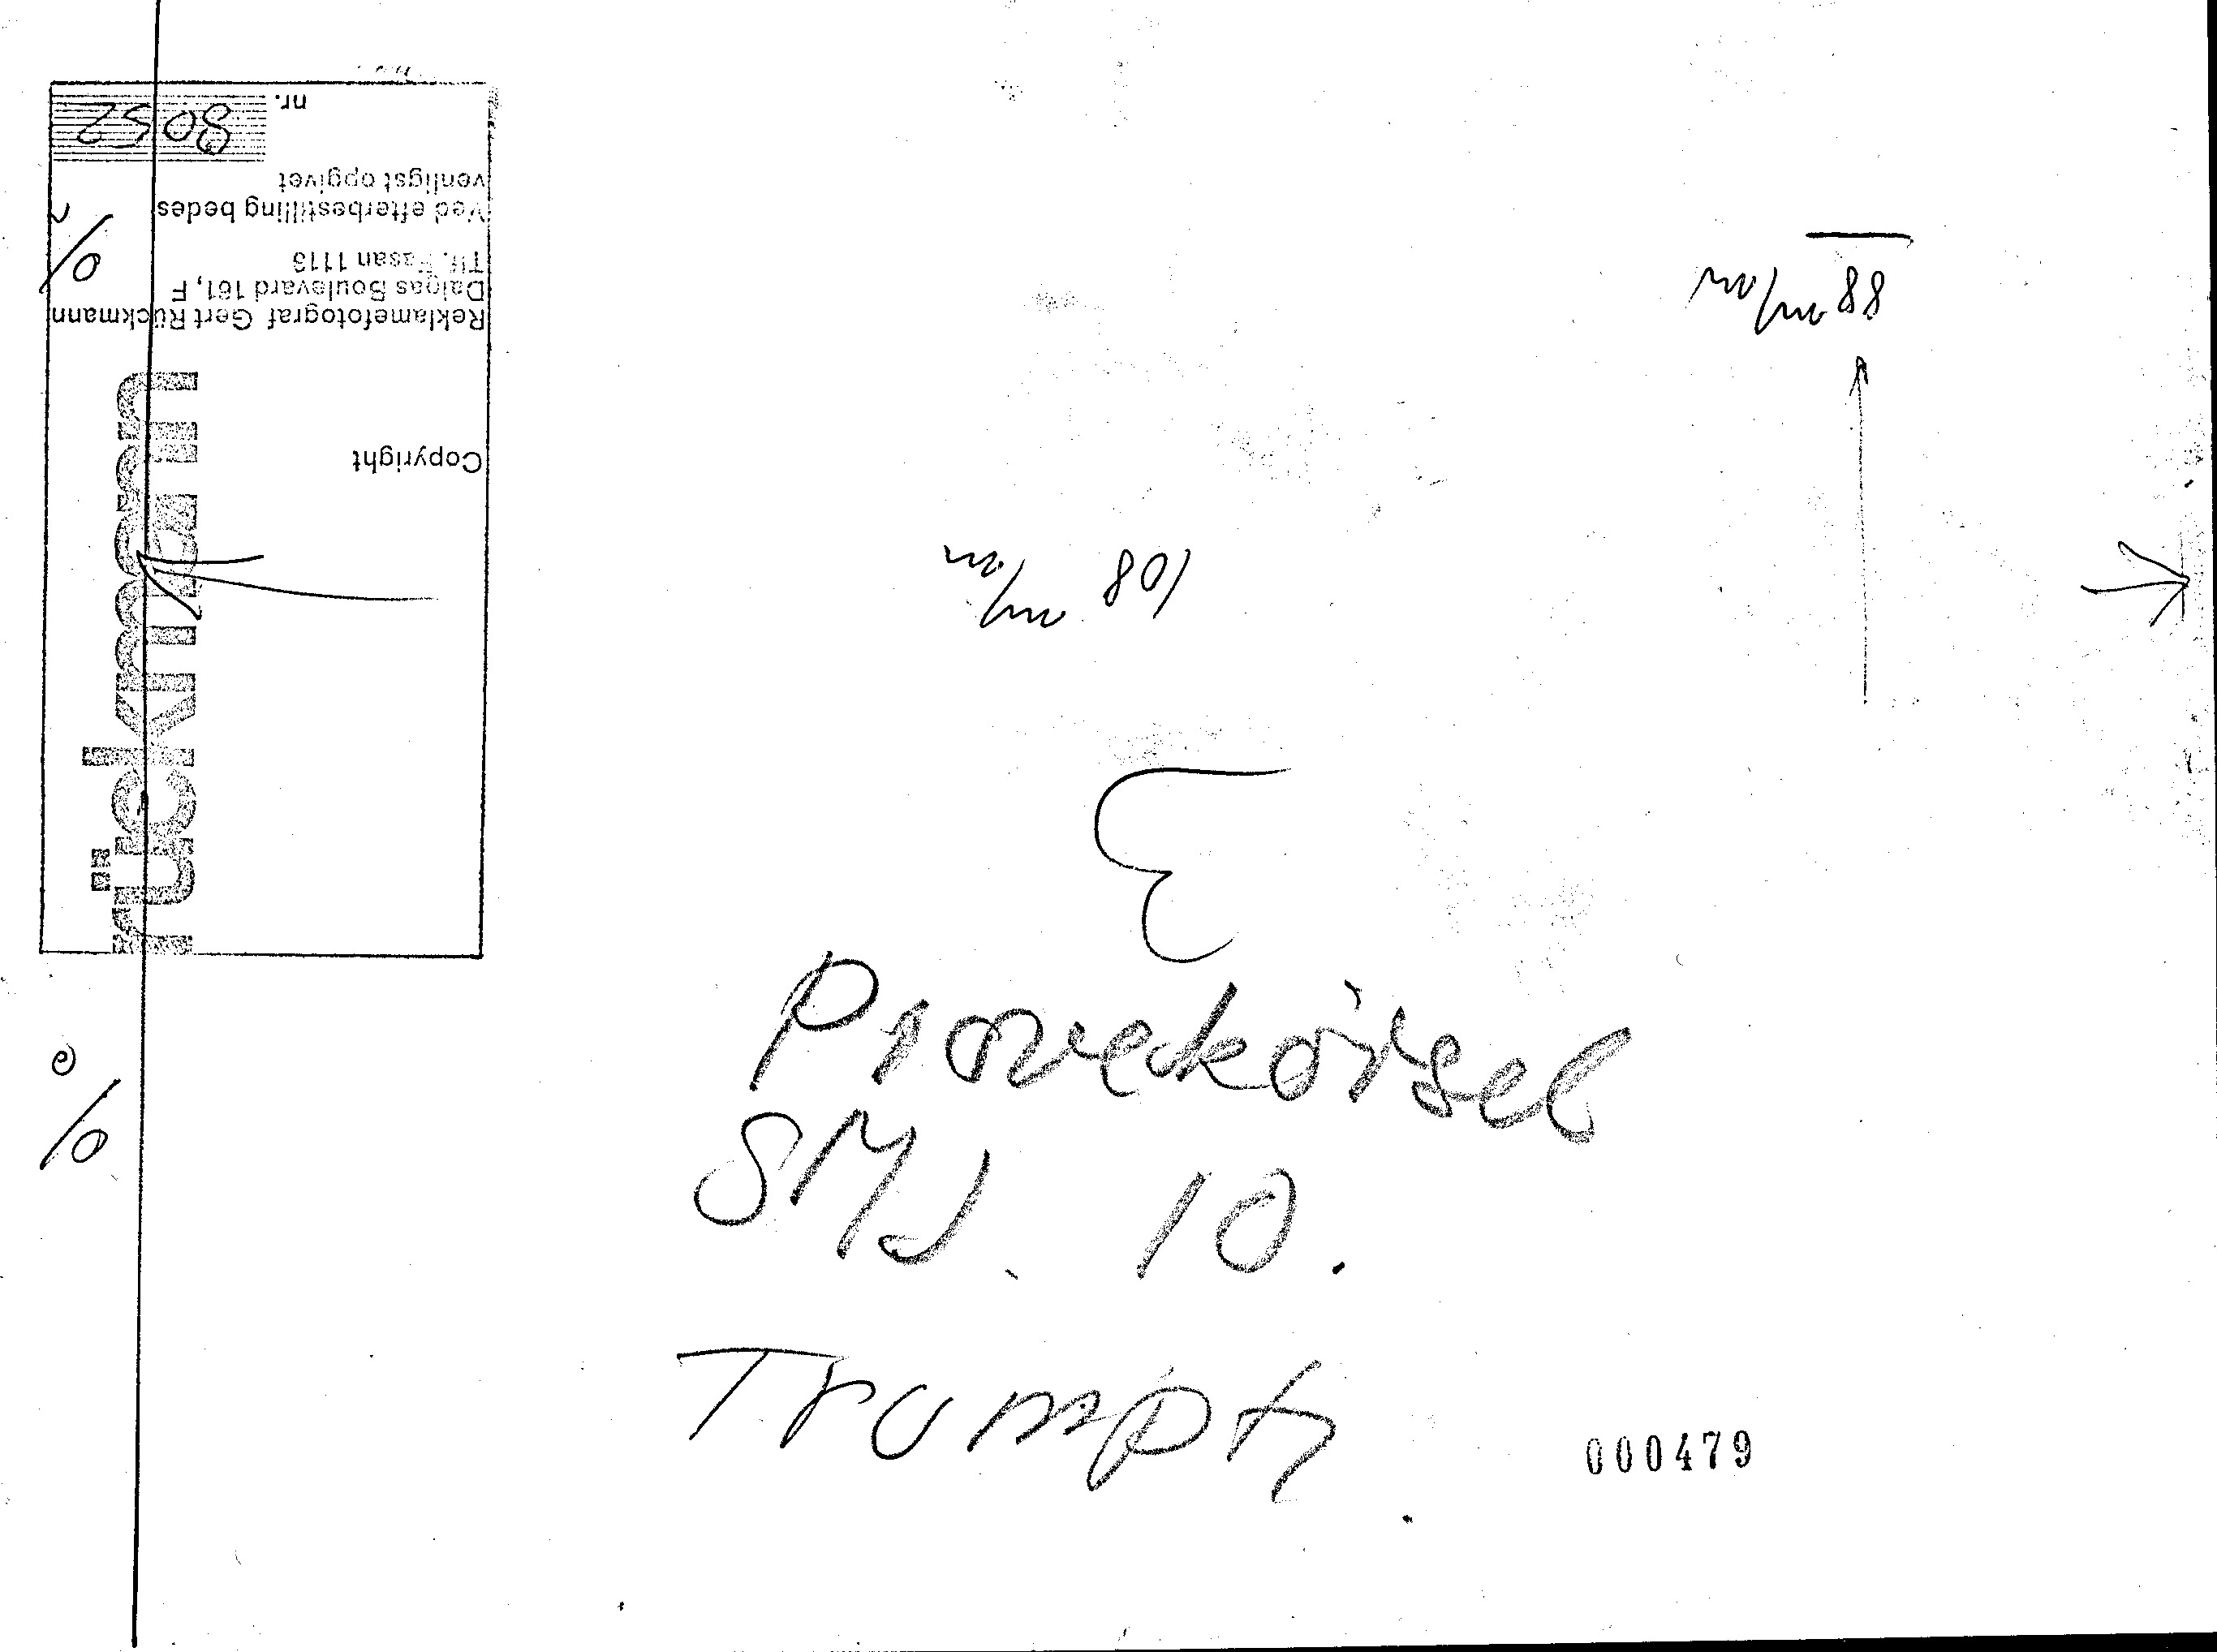 Prøvekörsel
SMJ. 10.
Trumph.
000479
108 m/m
88 m/m
rückmann
Copyright
Reklamefotograf Gert Rückmann
Dalgas Boulevard 161, F
Tlf. Fasan 1113
Ved efterbestilling bedes
venligst opgivet
nr. 8052